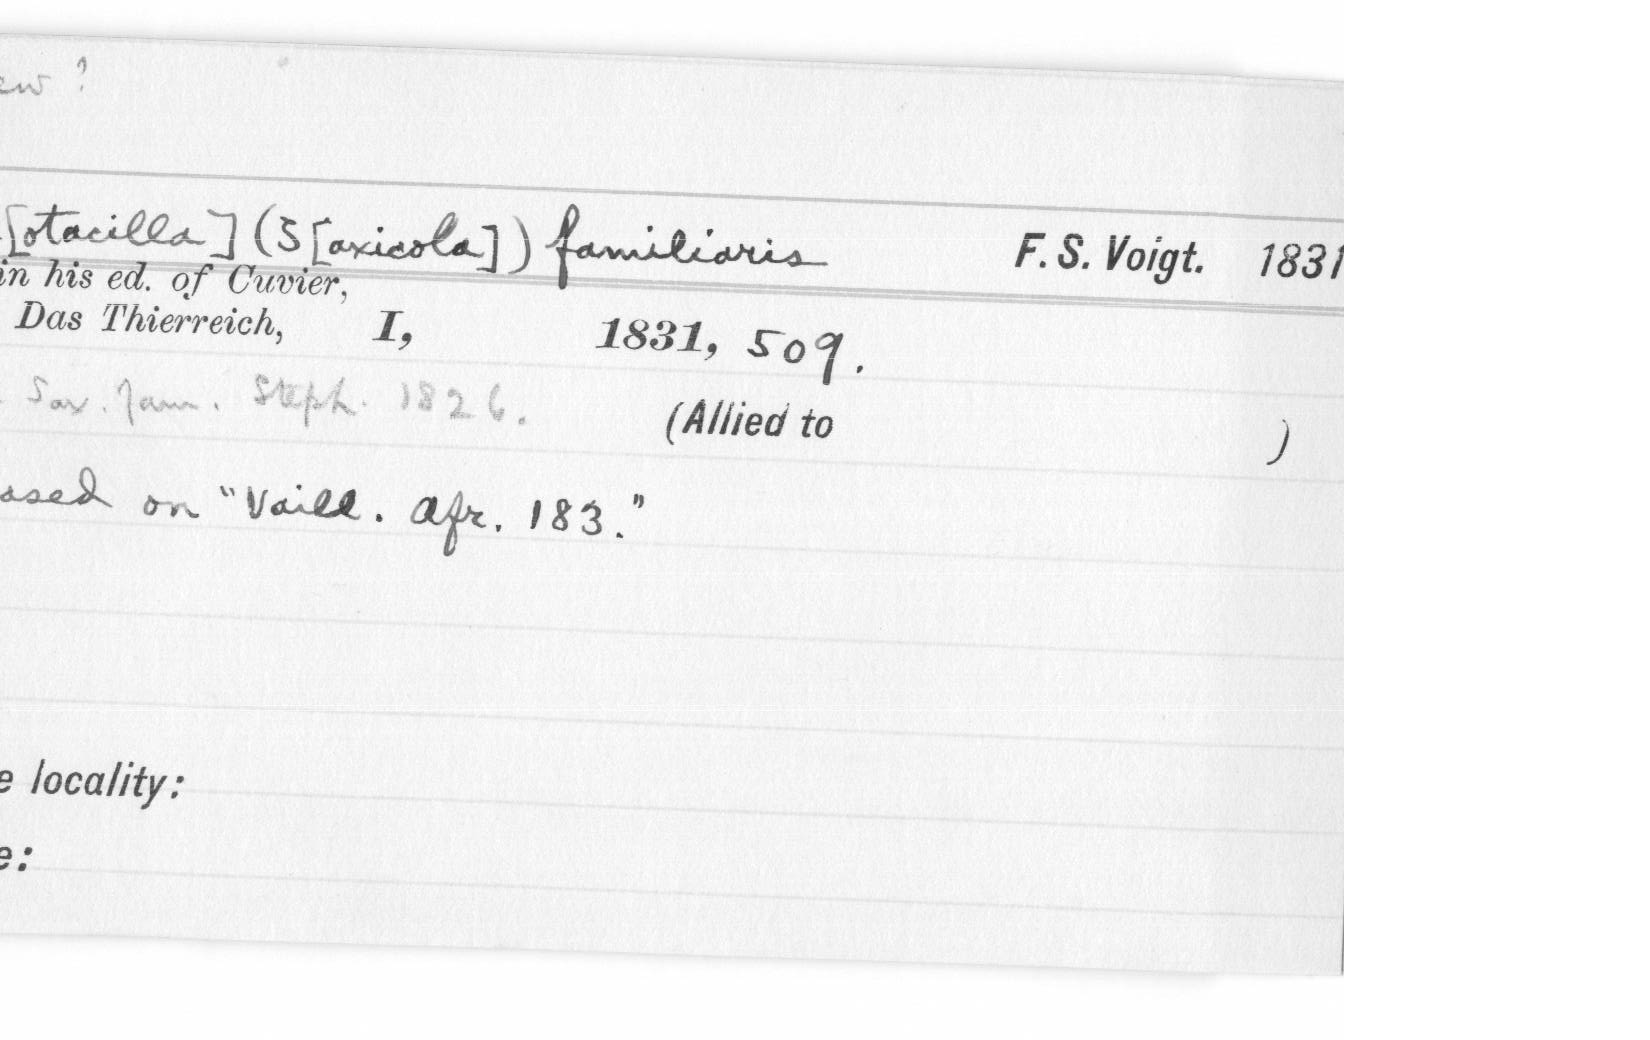 ew?
[otacilla] (S[axicola]) familiaris F. S. Voigt. 1831
in his ed. of Cuvier,
Das Thierreich, I, 1831, 509.
Sax. fam. Steph. 1826.
(Allied to )
ased on "Vaill. Afr. 183."
e locality:
e: